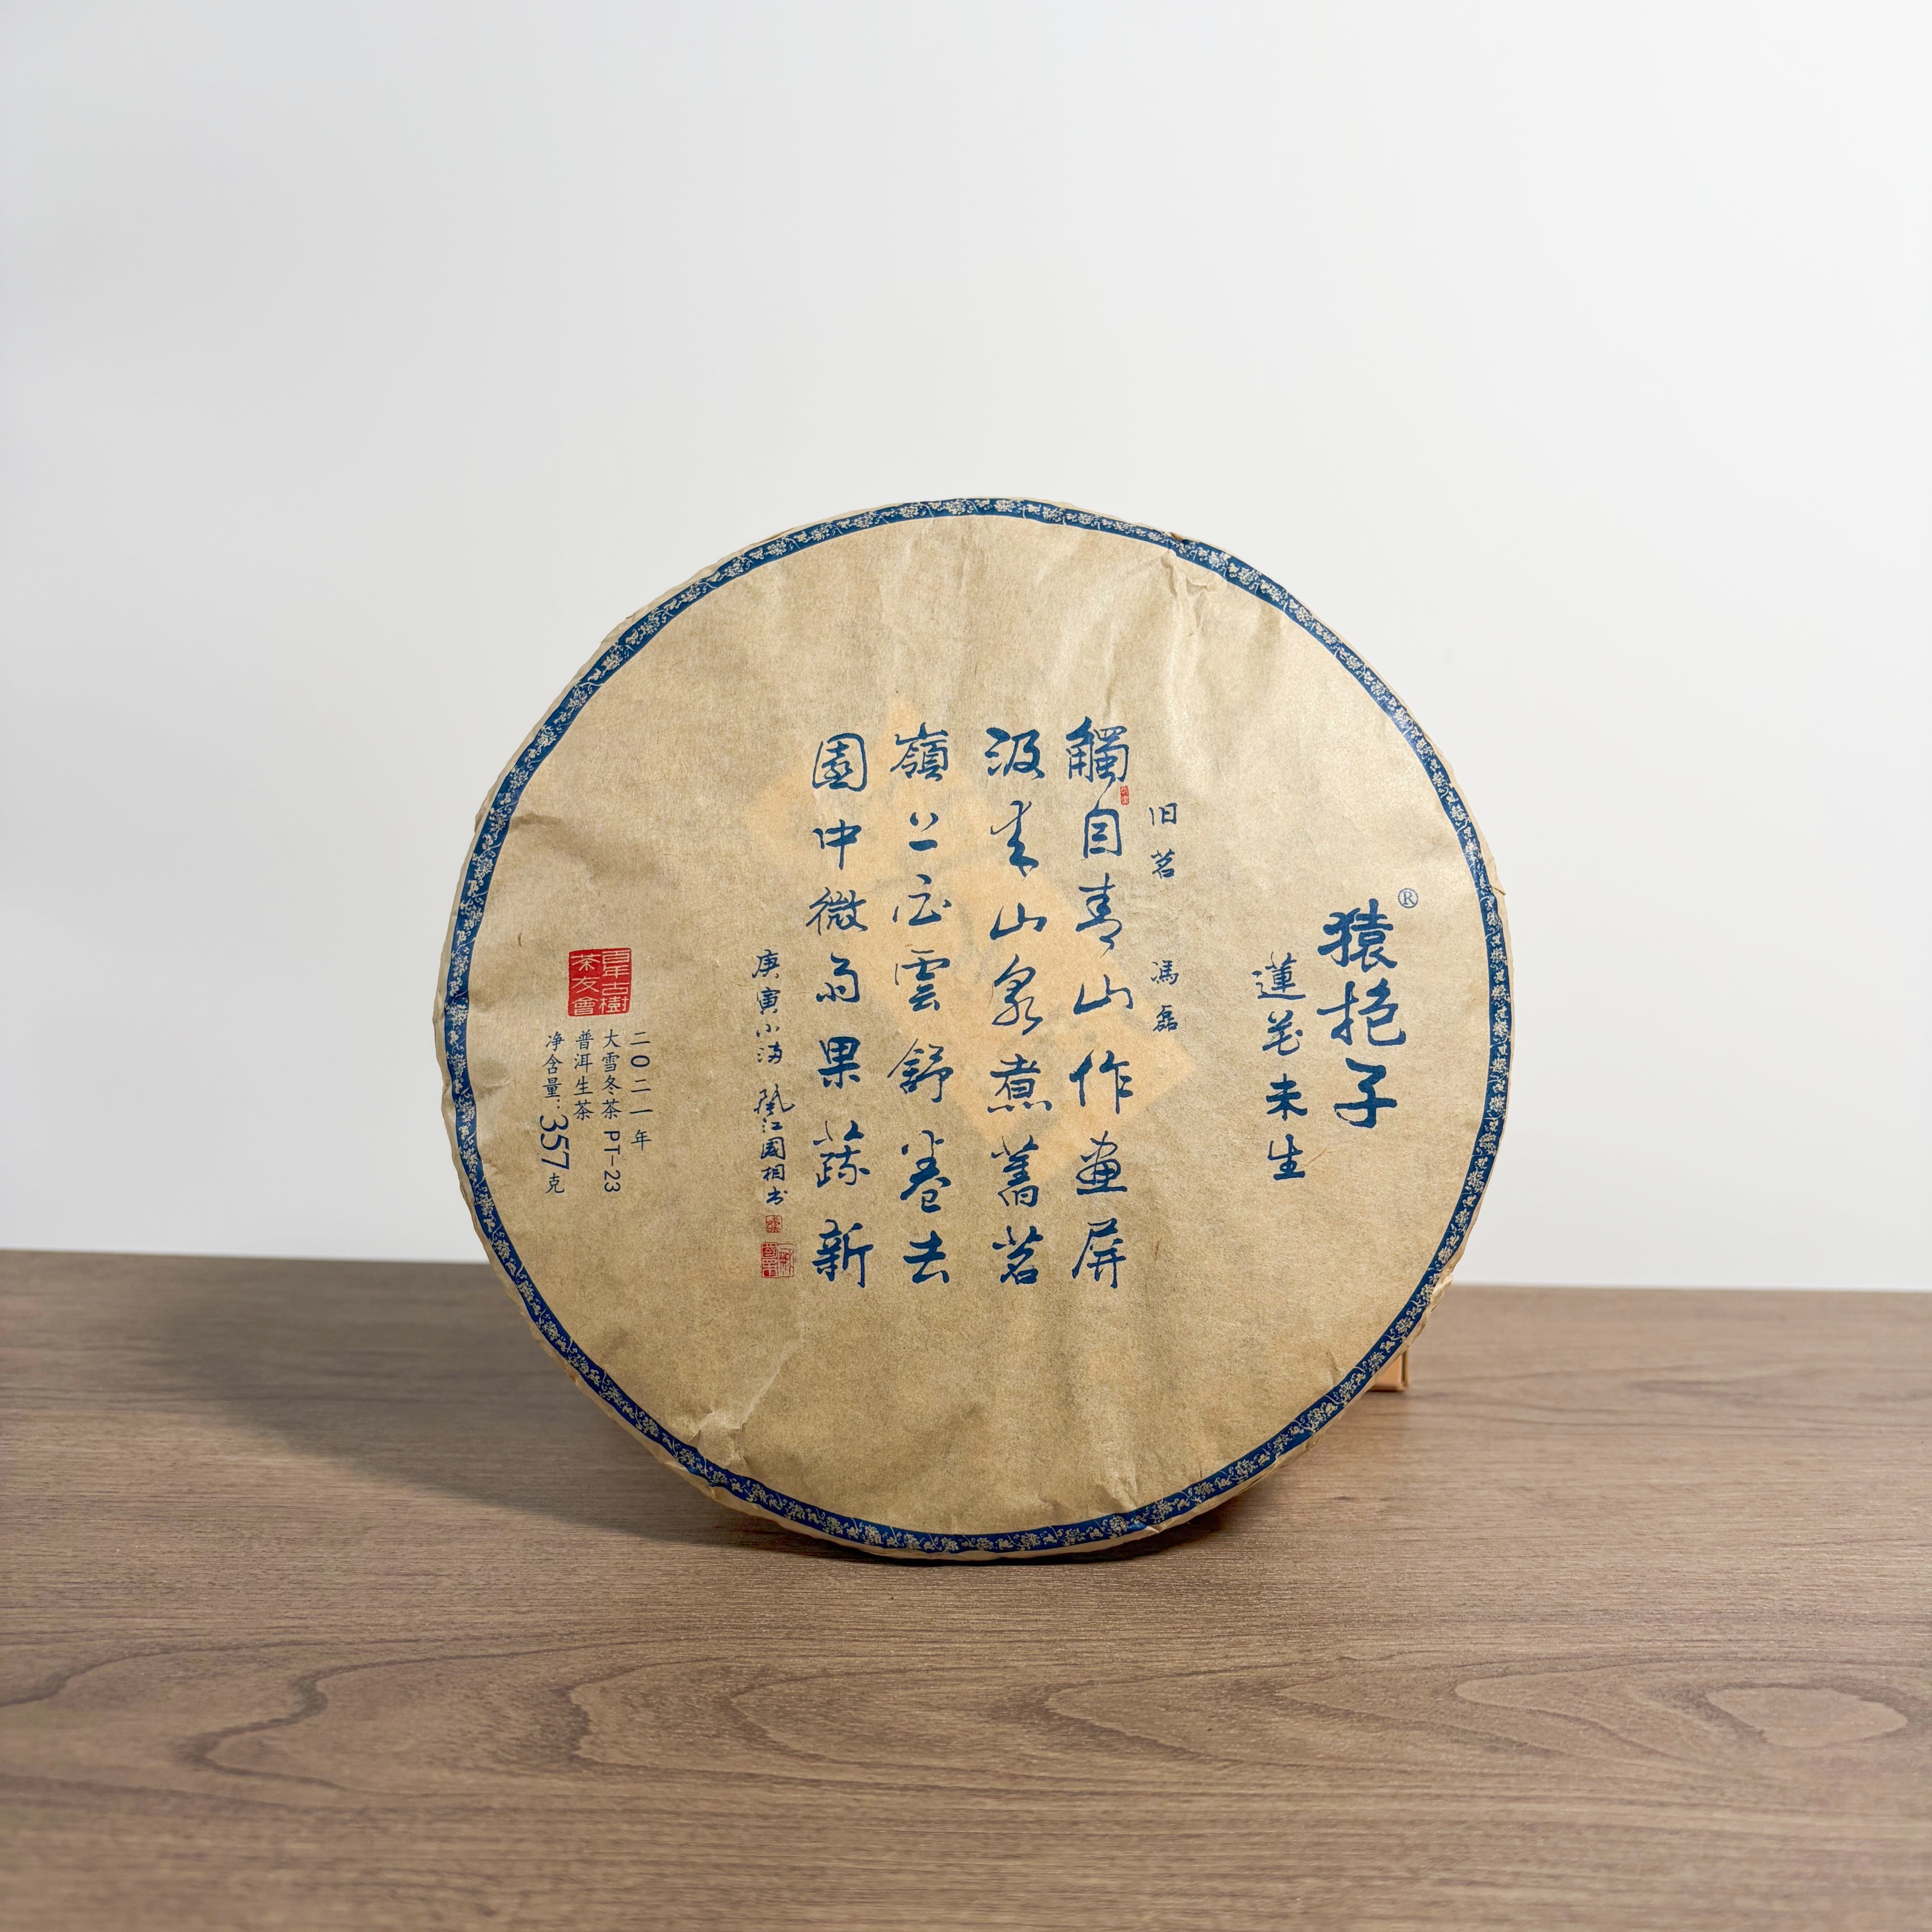 猿抱子®
蓮花未生
旧茗 馮磊
觸目青山作畫屏
汲来山泉煮舊茗
嶺上白雲舒卷去
園中微雨果蔬新
庚寅小满 江國相书
百年古樹
茶友會
二〇二一年
大雪冬茶 PT-23
普洱生茶
净含量:357克